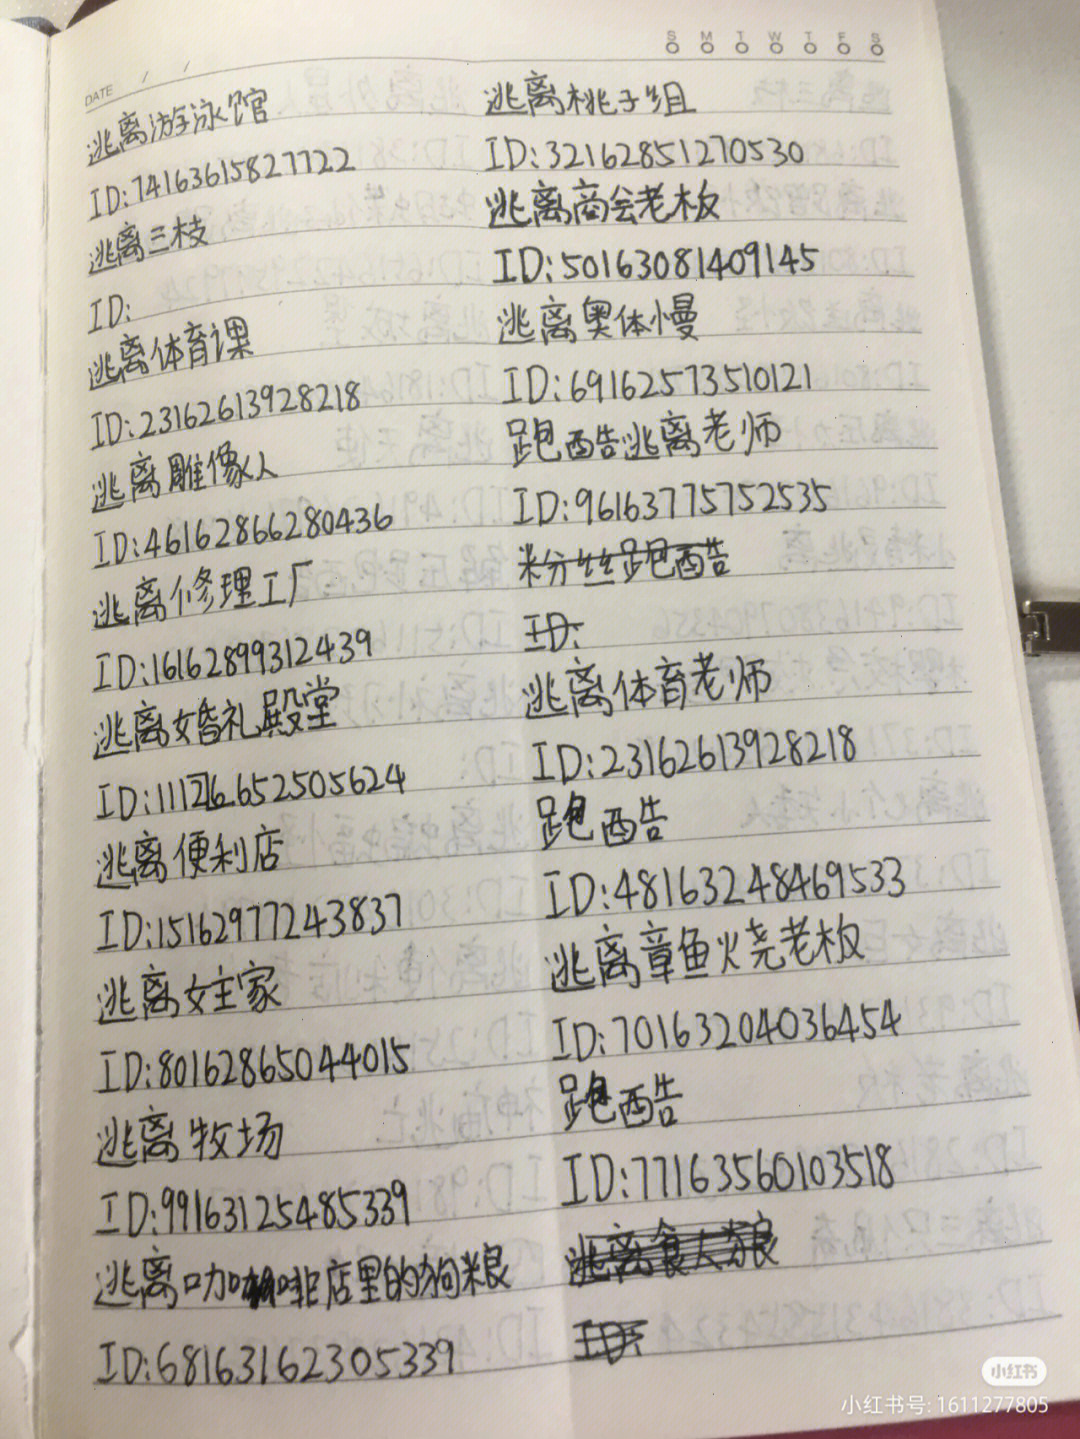 S M T W T F S
DATE / /
逃离游泳馆
ID:74163615827722
逃离三枝
ID:
逃离体育课
ID:23162613928218
逃离雕像人
ID:46162866280436
逃离修理工厂
ID:16162899312439
逃离婚礼殿堂
ID:11126652505624
逃离便利店
ID:15162977243837
逃离女主家
ID:80162865044015
逃离牧场
ID:99163125485339
逃离咖啡店里的狗粮
ID:68163162305339
逃离桃子组
ID:32162851270530
逃离商会老板
ID:50163081409145
逃离奥体慢
ID:69162573510121
跑酷逃离老师
ID:96163775752535
粉丝跑酷
ID:
逃离体育老师
ID:23162613928218
跑酷
ID:48163248469533
逃离章鱼火烧老板
ID:70163204036454
跑酷
ID:77163560103518
逃离食人狼
ID:
小红书
小红书号: 1611277805